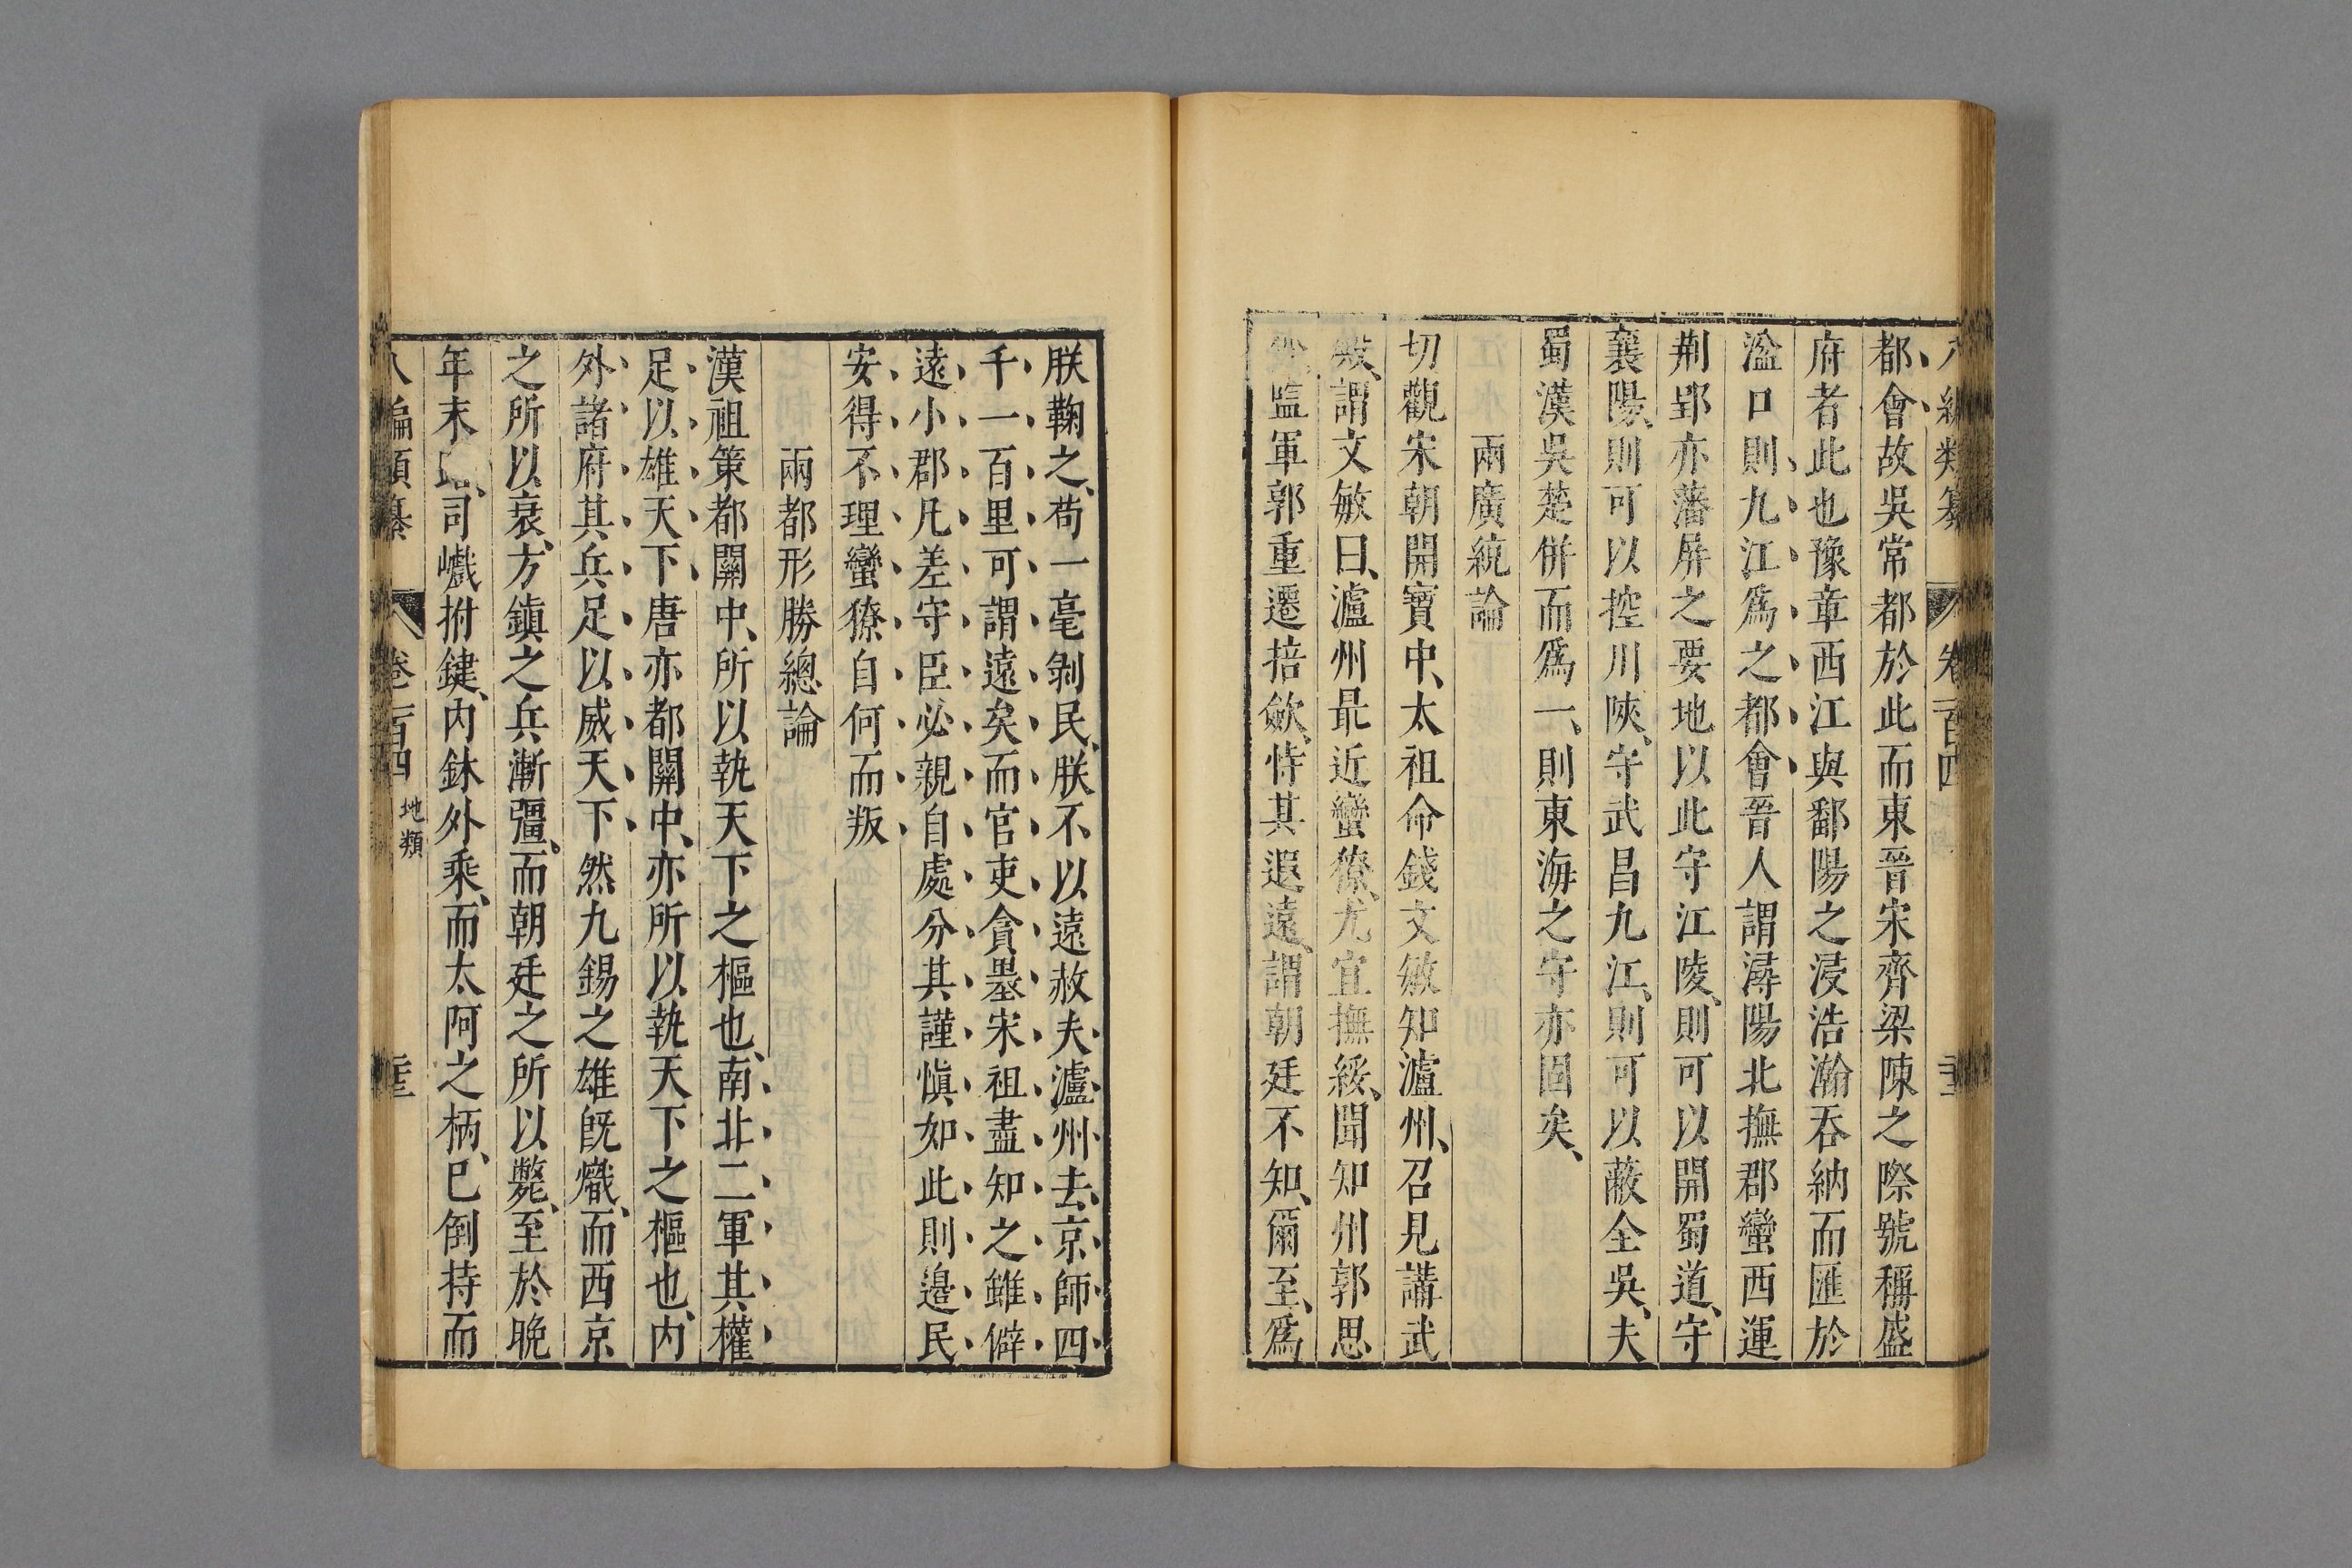 編類纂 卷一百四
都會故吳常都於此而東晉宋齊梁陳之際號稱盛
府者此也豫章西江與鄱陽之浸浩瀚吞納而匯於
湓口則九江爲之都會晉人謂潯陽北撫郡蠻西運
荆郢亦藩屏之要地以此守江陵、則可以開蜀道、守
襄陽、則可以控川陝、守武昌九江、則可以蔽全吳、夫
蜀漢吳楚併而爲一、則東海之守亦固矣、
兩廣統論
切觀宋朝開寶中、太祖命錢文敏知瀘州、召見講武
殿、謂文敏曰、瀘州最近蠻獠、尤宜撫綏、聞知州郭思
監軍郭重遷掊斂、恃其遐遠、謂朝廷不知、爾至、爲
朕鞠之、苟一毫剝民、朕不以遠赦夫瀘州去京師四
千一百里可謂遠矣而官吏貪墨宋祖盡知之雖僻
遠小郡凡差守臣必親自處分其謹慎如此則邉民
安得不理蠻獠自何而叛
兩都形勝總論
漢祖策都關中、所以執天下之樞也、南北二軍其權
足以雄天下唐亦都關中、亦所以執天下之樞也、内
外諸府其兵足以威天下然九錫之雄既熾、而西京
之所以衰、方鎮之兵漸彊、而朝廷之所以斃、至於晚
年末、司巇拊鍵、内鉥外乘、而太阿之柄、已倒持而
編類纂 卷一百四 地類